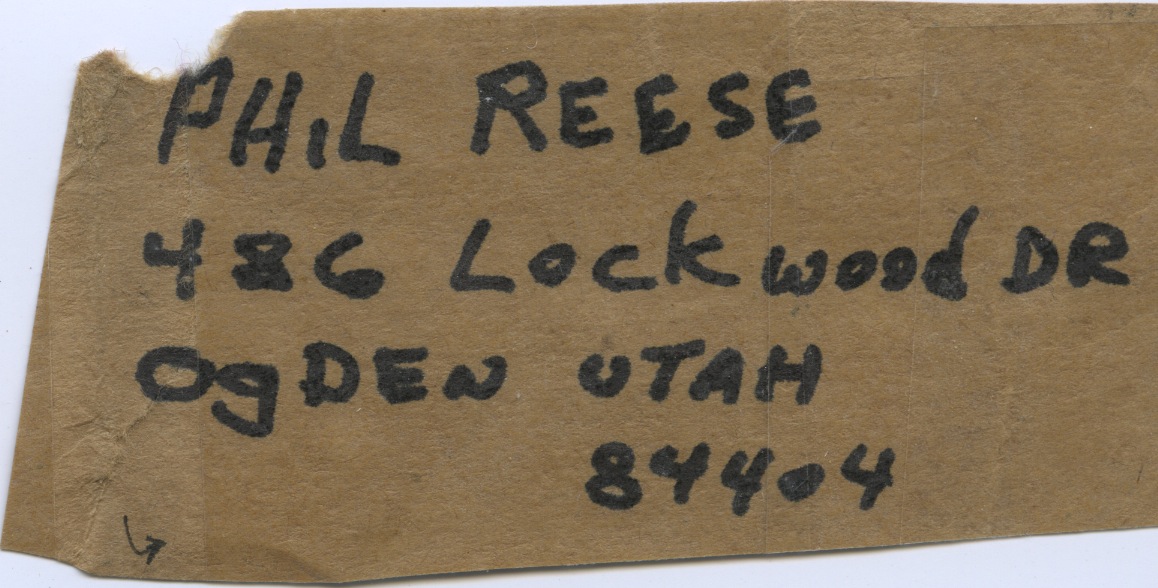 PHiL REESE
486 Lockwood DR
OgDEN UTAH
84404